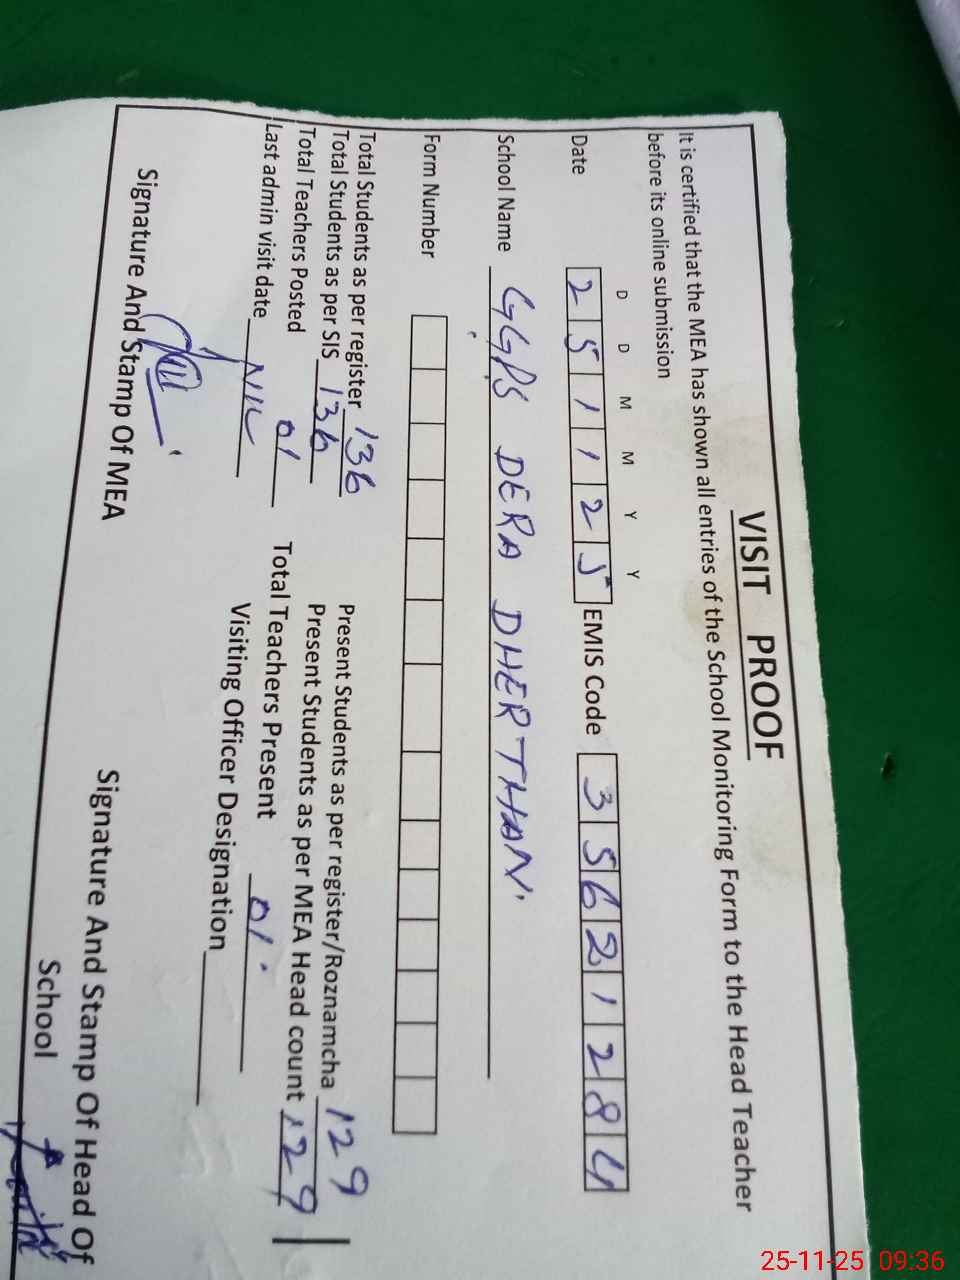 VISIT PROOF
It is certified that the MEA has shown all entries of the School Monitoring Form to the Head Teacher
before its online submission
D D M M Y Y
Date 2 5 1 1 2 5 EMIS Code 3 5 6 2 1 2 8 4
School Name GGPS DERA DHERTHAN.
Form Number
Total Students as per register 136 Present Students as per register/Roznamcha 129
Total Students as per SIS 136 Present Students as per MEA Head count 129
Total Teachers Posted 01 Total Teachers Present 01.
Last admin visit date NIL Visiting Officer Designation
Signature And Stamp Of MEA Signature And Stamp Of Head Of
School
25-11-25 09:36